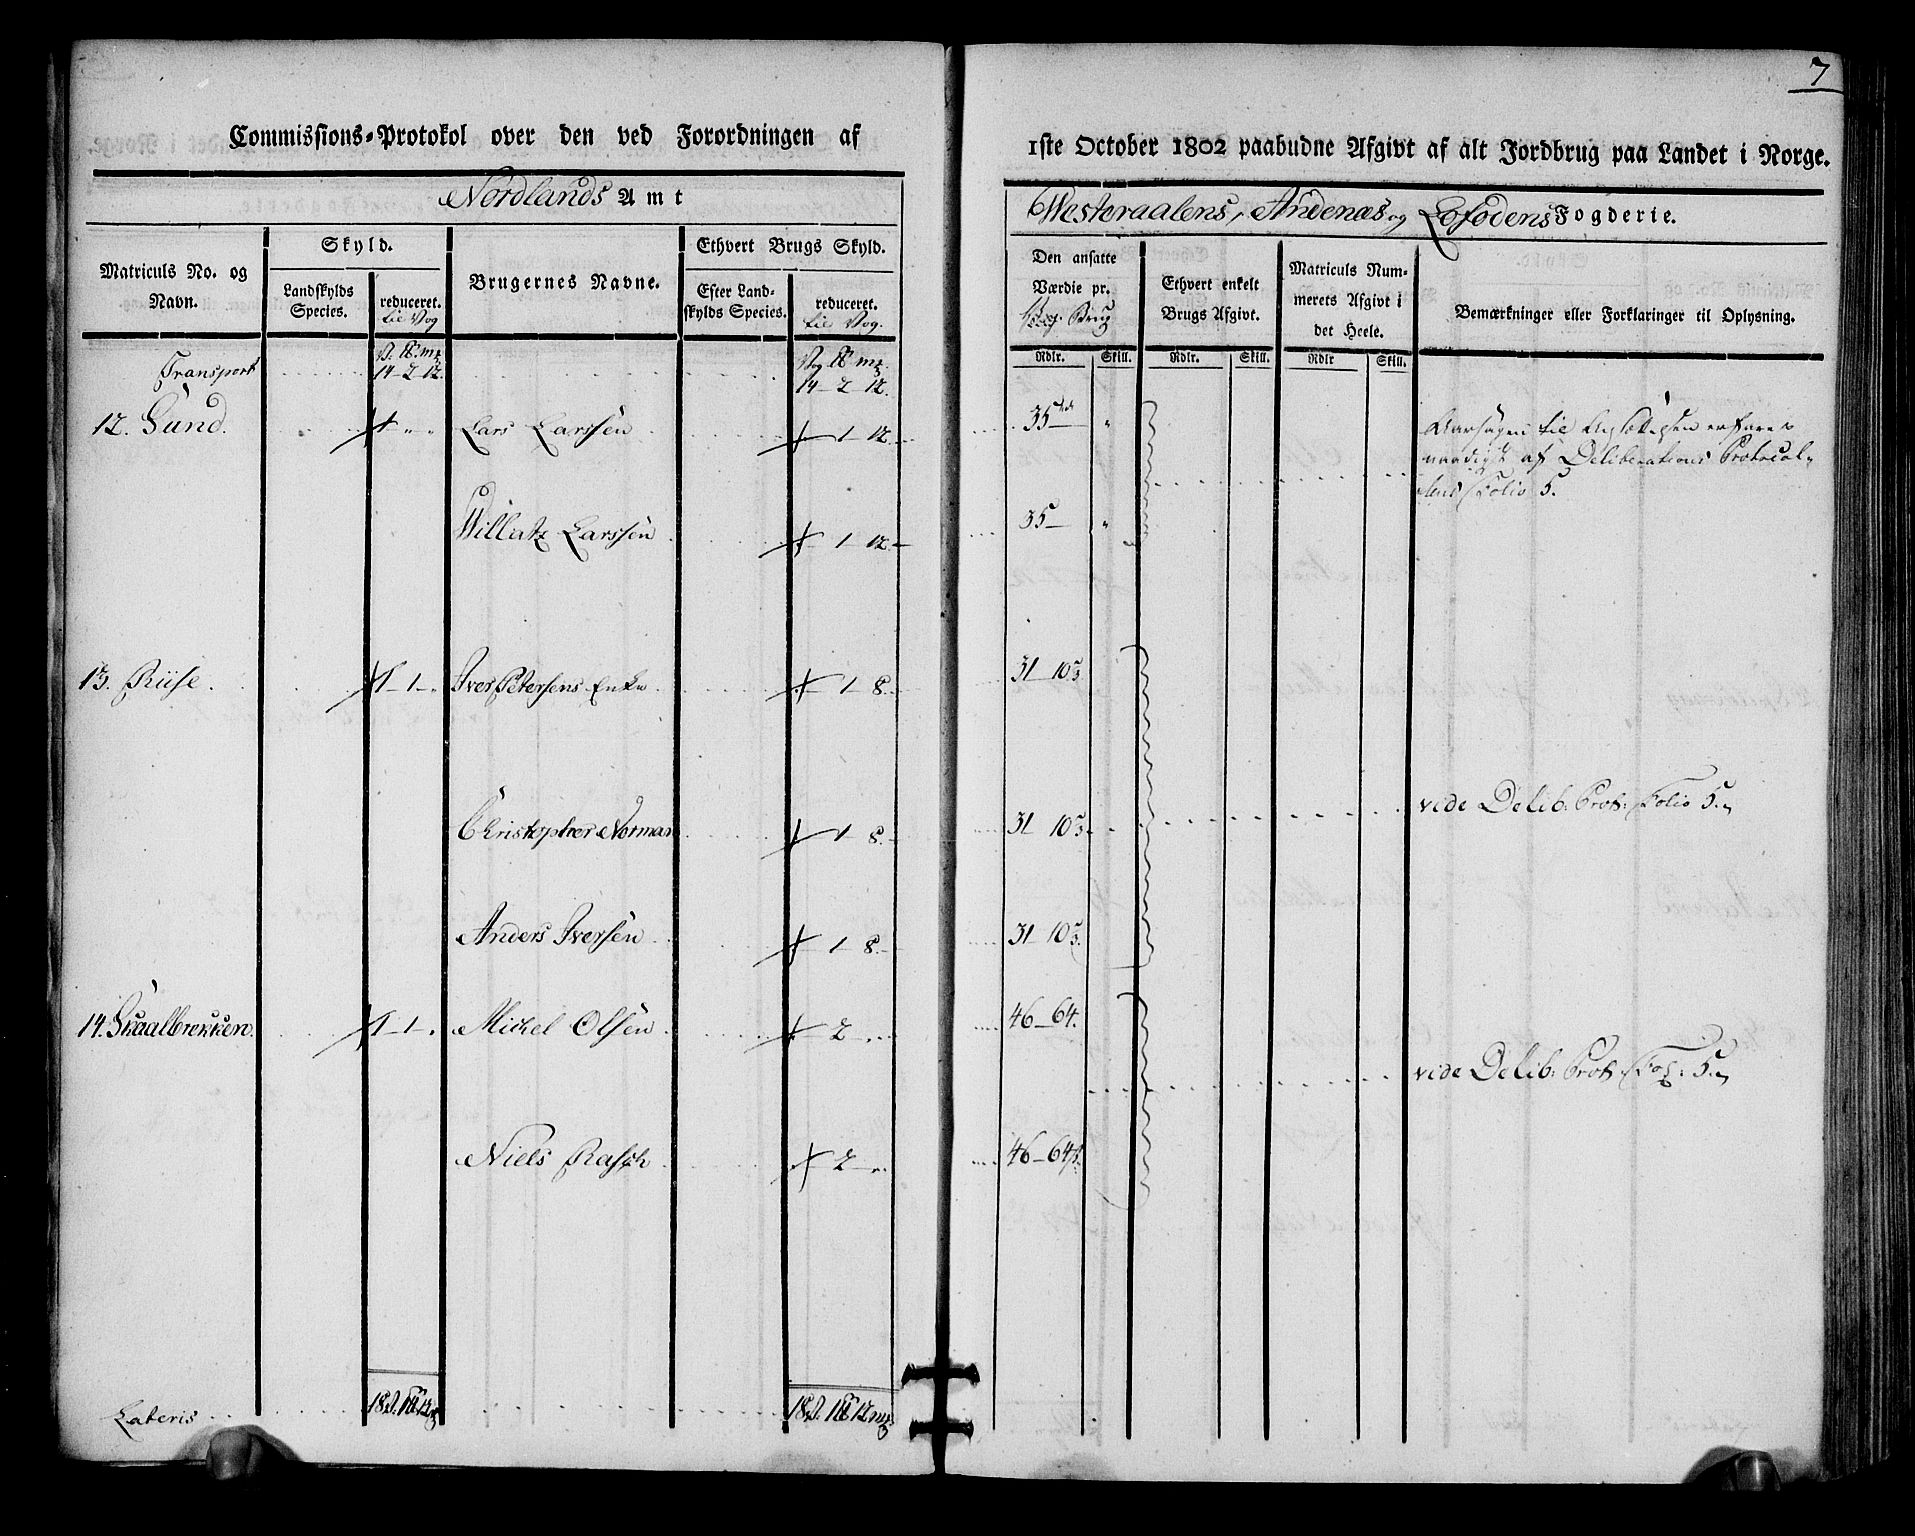 7
Commissions-Protokol over den ved Forordningen af
1ste October 1802 paabudne Afgivt af alt Jordbrug paa Landet i Norge.
Nordlands Amt
Westeraalens, Andenæs og Lofodens Fogderie.
Matriculs No. og Navn.
Skyld.
Landskylds Species.
reduceret. til Vog
Brugernes Navne.
Ethvert Brugs Skyld.
Efter Landskylds Species.
reduceret. til Vog.
Den ansatte Værdie pr. Brug
Ethvert enkelt Brugs Afgivt.
Matriculs Nummerets Afgivt i det Heele.
Bemærkninger eller Forklaringer til Oplysning.
Rdlr. Skill. Rdlr. Skill. Rdlr Skill.
V. ℔. mk Vog ℔ mk.
Transport 14-2-12. 14-2-12.
12. Sund. 1 " " Lars Larssen 1-12 35 "
Aarsagen til Ansættelsen erfares
naadigst af Deliberations Protocol-
lens Folio 5.
Willatz Larssen 1-12 35 "
13. Riise 1-1-" Iver Petersens Enke 1-8. 31 10⅔
vide Delib: Prot: Folio 5.
Christopher Norman 1-8. 31 10⅔
Anders Iversen 1-8. 31 10⅔
14. Skaalbrekken. 1-1. Michel Olsen 2 46-64.
vide Delib: Prot: Fol: 5.
Niels Rasch 2 46-64
Lateris 18 V. 1 ℔ 12 mk 18 V. 1 ℔ 12 mk